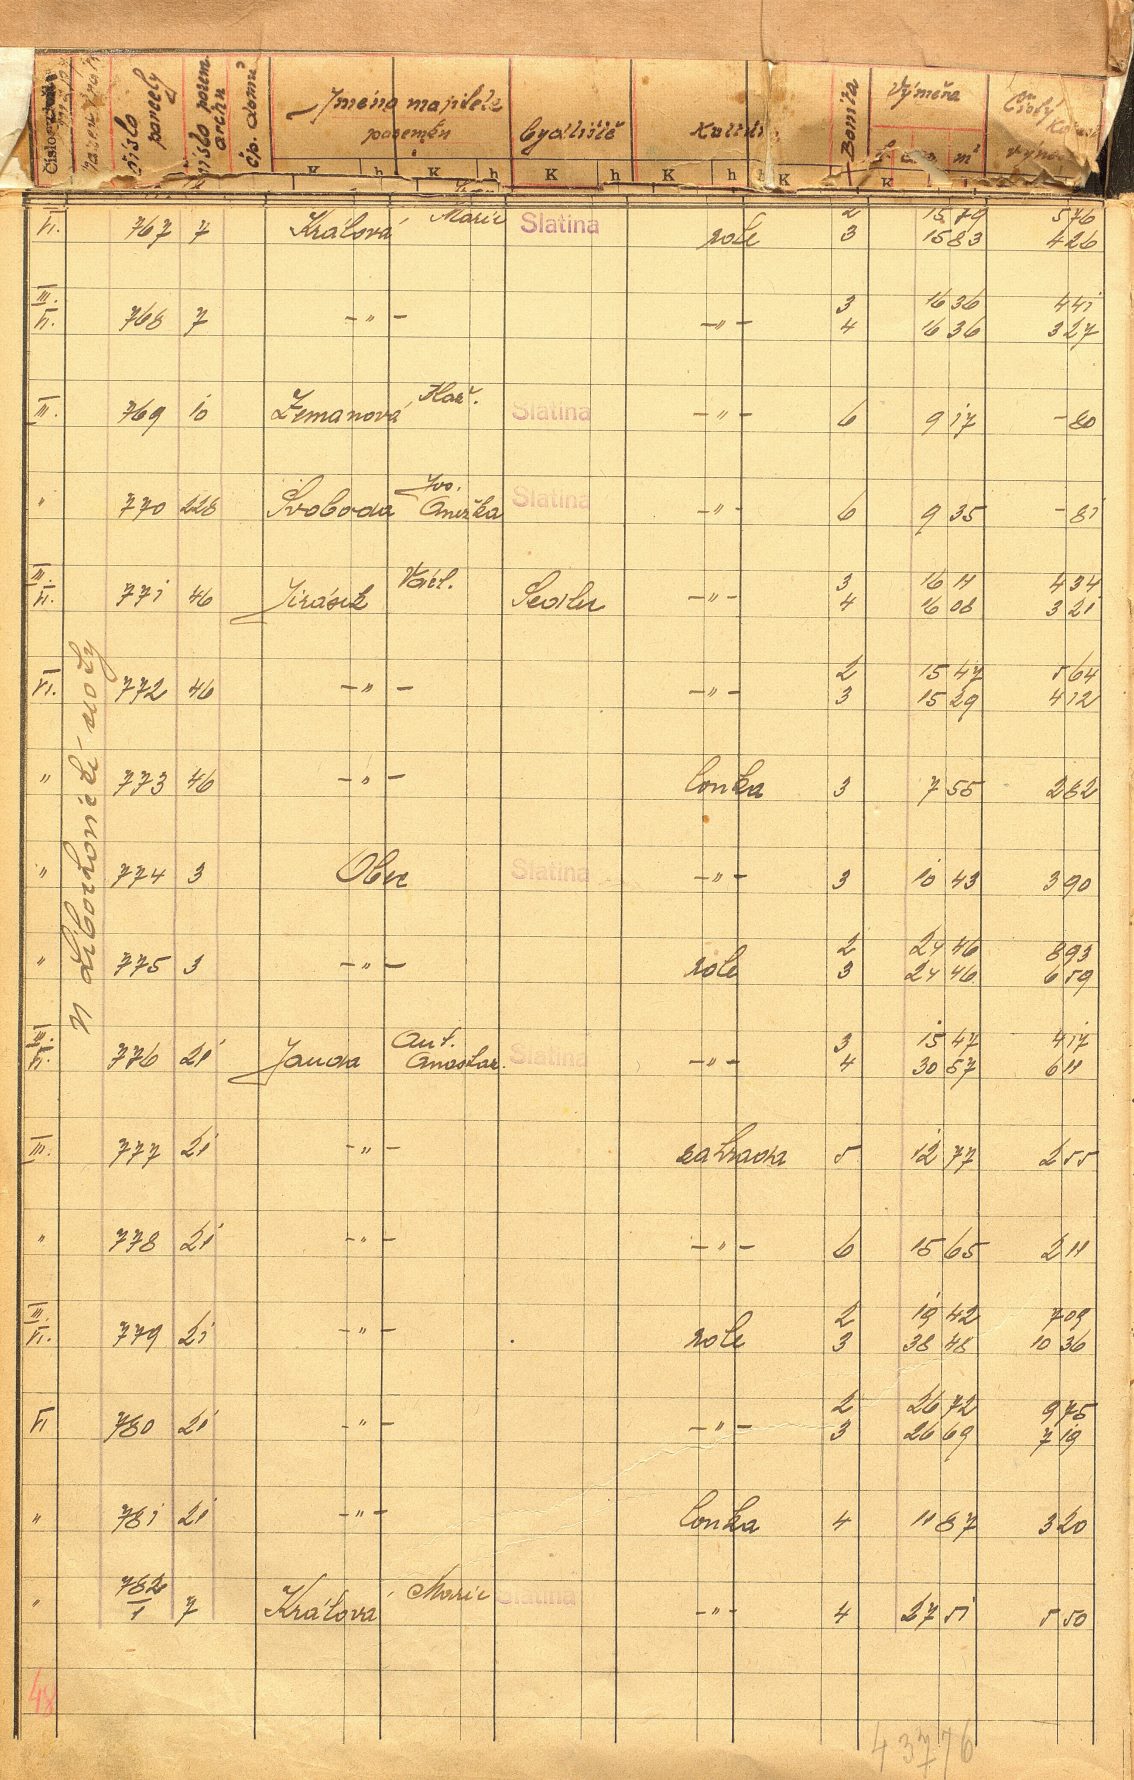 Číslo
číslo parcely
číslo pozem. archu
čp. domu
Jméno majitele pozemku
bydliště
Kultura
Bonita
Výměra
m²
Čistý
K h K h K h K h K K
VI. 767 7 Králová Marie Slatina role 2 15 79 5 76
3 15 83 4 26
III. 3 16 36 4 41
VI. 768 7 - " - - " - 4 16 36 3 27
III. 769 10 Zemanová Slatina - " - 6 9 17 - 80
" 770 228 Svoboda Anežka Slatina - " - 6 9 35 - 81
III. Václ. 3 16 11 4 34
VI. 771 46 Jirásek Sedlec - " - 4 16 08 3 21
VI. 772 46 - " - - " - 2 15 47 5 64
3 15 29 4 12
" 773 46 - " - louka 3 7 55 2 82
" 774 3 Obec Slatina - " - 3 10 43 3 90
" 775 3 - " - role 2 24 46 8 93
3 24 46 6 59
III. Ant. 3 15 47 4 17
VI. 776 21 Janda Anastaz. Slatina - " - 4 30 57 6 11
III. 777 21 - " - zahrada 5 12 77 2 55
" 778 21 - " - - " - 6 15 65 2 11
III. 2 19 42 7 09
VI. 779 21 - " - role 3 38 48 10 36
VI 780 21 - " - - " - 2 26 72 9 75
3 26 69 7 19
" 781 21 - " - louka 4 11 87 3 20
" 782/1 7 Králová Marie Slatina - " - 4 27 51 5 50
48
43776